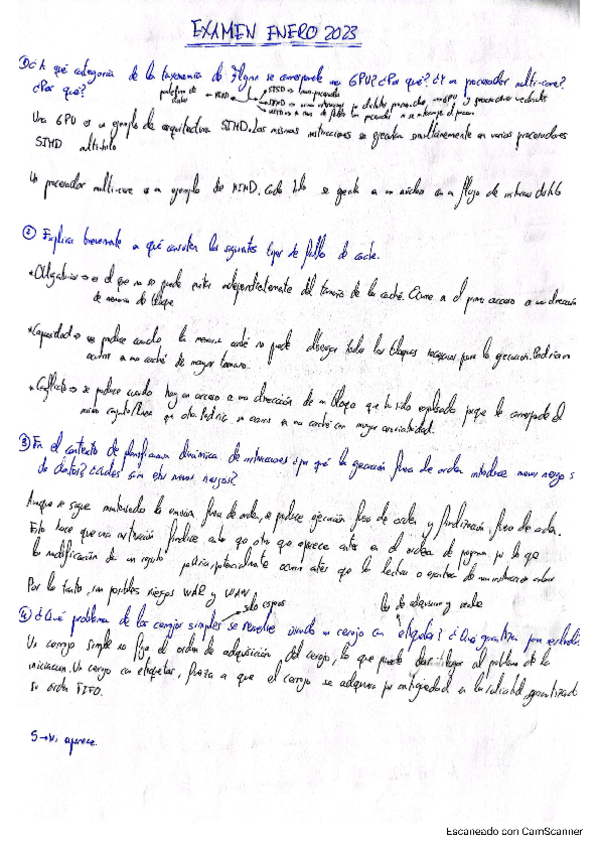 EXAMEN ENERO 2023
① ¿A qué categoría de la taxonomía de Flynn se corresponde una GPU? ¿Por qué? ¿Y un procesador multi-core?
¿Por qué?
SISD →
SIMD →
Una GPU es un ejemplo de arquitectura SIMD. Las mismas instrucciones se ejecutan simultáneamente en varios procesadores
SIMD multihilo
Un procesador multi-core es un ejemplo de MIMD. Cada hilo se ejecuta en un núcleo con un flujo de instrucciones distinto
② Explica brevemente en qué consisten los siguientes tipos de fallo de caché.
* Obligatorio → es el que no se puede evitar independientemente del tamaño de la caché. Ocurre en el primer acceso a una dirección
de memoria del bloque
* Capacidad → se produce cuando la memoria caché no puede albergar todos los bloques necesarios para la ejecución. Podrían
evitarse en una caché de mayor tamaño.
* Conflicto → se produce cuando hay un acceso a una dirección de un bloque que ha sido expulsado porque le corresponde el
mismo conjunto/línea que otro. Podría no ocurrir en una caché con mayor asociatividad.
③ En el contexto de planificación dinámica de instrucciones ¿por qué la ejecución fuera de orden introduce nuevos riesgos
de datos? ¿Cuáles son estos nuevos riesgos?
Aunque se sigue manteniendo la emisión fuera de orden, se produce ejecución fuera de orden y finalización fuera de orden.
Esto hace que una instrucción finalice antes que otra que aparece antes en el orden de programa por lo que
la modificación de un registro podría potencialmente ocurrir antes que la lectura o escritura de una instrucción anterior
Por lo tanto, son posibles riesgos WAR y WAW
solo cerrojos
④ ¿Qué problema de los cerrojos simples se resuelve usando un cerrojo con etiquetas? ¿Qué garantiza
Un cerrojo simple no fija el orden de adquisición del cerrojo, lo que puede dar lugar al problema de la
inanición. Un cerrojo con etiquetas, fuerza a que el cerrojo se adquiera por antigüedad en la solicitud garantizando
un orden FIFO.
5 → Ni aparece.
Escaneado con CamScanner